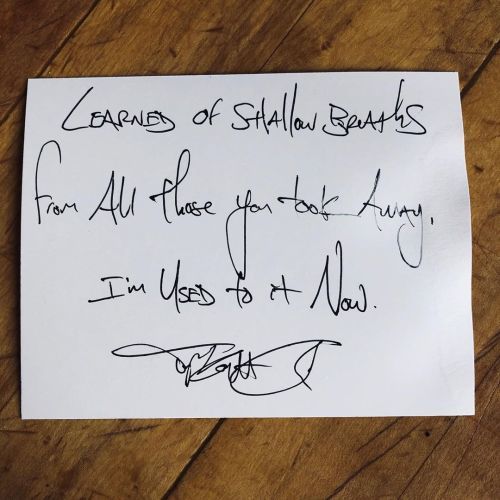 LEARNED of SHAllow BREATHS
from All those you took AWAY.
I'm USED to it Now.